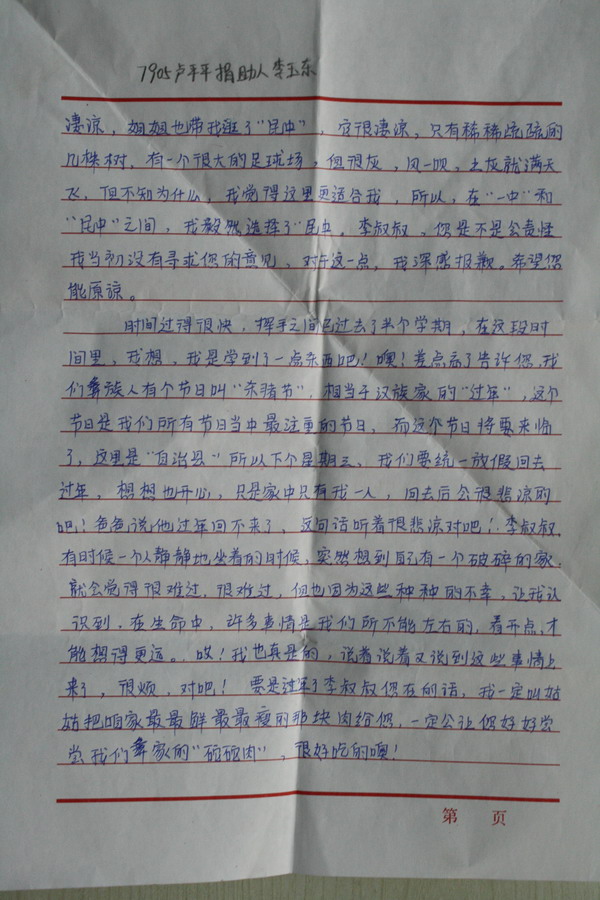 7905卢平平捐助人李玉东
凄凉，姐姐也带我逛了“民中”，它很凄凉，只有稀稀疏疏的
几株树，有一个很大的足球场，但很灰，风一吹，土灰就满天
飞，但不知为什么，我觉得这里更适合我，所以，在“一中”和
“民中”之间，我毅然选择了“民中。李叔叔，您是不是会责怪
我当初没有寻求您的意见、对于这一点，我深感报歉。希望您
能原谅。
时间过得很快，挥手之间已过去了半个学期，在这段时
间里，我想，我是学到了一点东西吧！噢！差点忘了告诉您，我
们彝族人有个节日叫“杀猪节”，相当于汉族家的“过年”，这个
节日是我们所有节日当中最注重的节日，而这个节日将要来临
了，这里是“自治县”所以下个星期三、我们要统一放假回去
过年，想想也开心，只是家中只有我一人，回去后会很悲凉的
吧！爸爸说他过年回不来了，这句话听着很悲凉对吧！李叔叔，
有时候一个人静静地坐着的时候，突然想到自己有一个破碎的家，
就会觉得很难过，很难过，但也因为这些种种的不幸，让我认
识到，在生命中，许多事情是我们所不能左右的，看开点，才
能想得更远。哎！我也真是的，说着说着又说到这些事情上
来了，很烦，对吧！要是过年了李叔叔您在的话，我一定叫姑
姑把咱家最最鲜最最瘦的那块肉给您，一定会让您好好尝
尝我们彝家的“砣砣肉”，很好吃的噢！
第 页